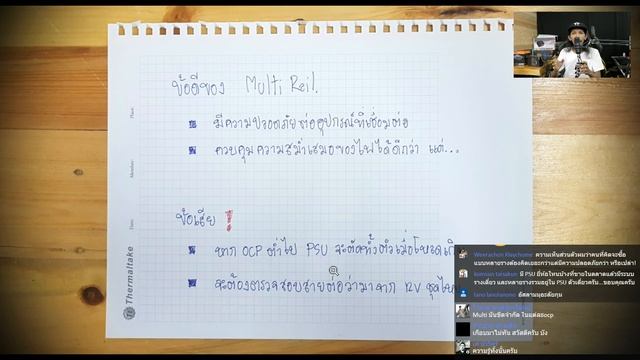 ข้อดีของ Multi Reil.
มีความปลอดภัยต่ออุปกรณ์ที่เชื่อมต่อ
ควบคุมความสม่ำเสมอของไฟได้ดีกว่า แต่...
ข้อเสีย !
หาก OCP ต่ำไป PSU จะตัดทั้งตัวเมื่อโหลดเกิ
จะต้องตรวจสอบสายต่อว่ามาจาก 12V ชุดไหน
Thermaltake
ความเห็นส่วนตัวผมว่าคนที่คิดจะซื้อ
แบบหลายรางต้องคิดเยอะกว่าแต่มีความปลอดภัยกว่า หรือเปล่า!
มี PSU ยี่ห้อไหนบ้างที่ขายในตลาดแล้วมีระบบ
รางเดี่ยว และหลายรางรวมอยู่ใน PSU ตัวเดียวครับ...ขอบคุณครับ
อัสลามุอะลัยกุม
Multi มันขีดจำกัด ในแต่ละocp
เกือบมาไม่ทัน สวัสดีครับ บัง
ความรู้ทั้งนั้นครับ